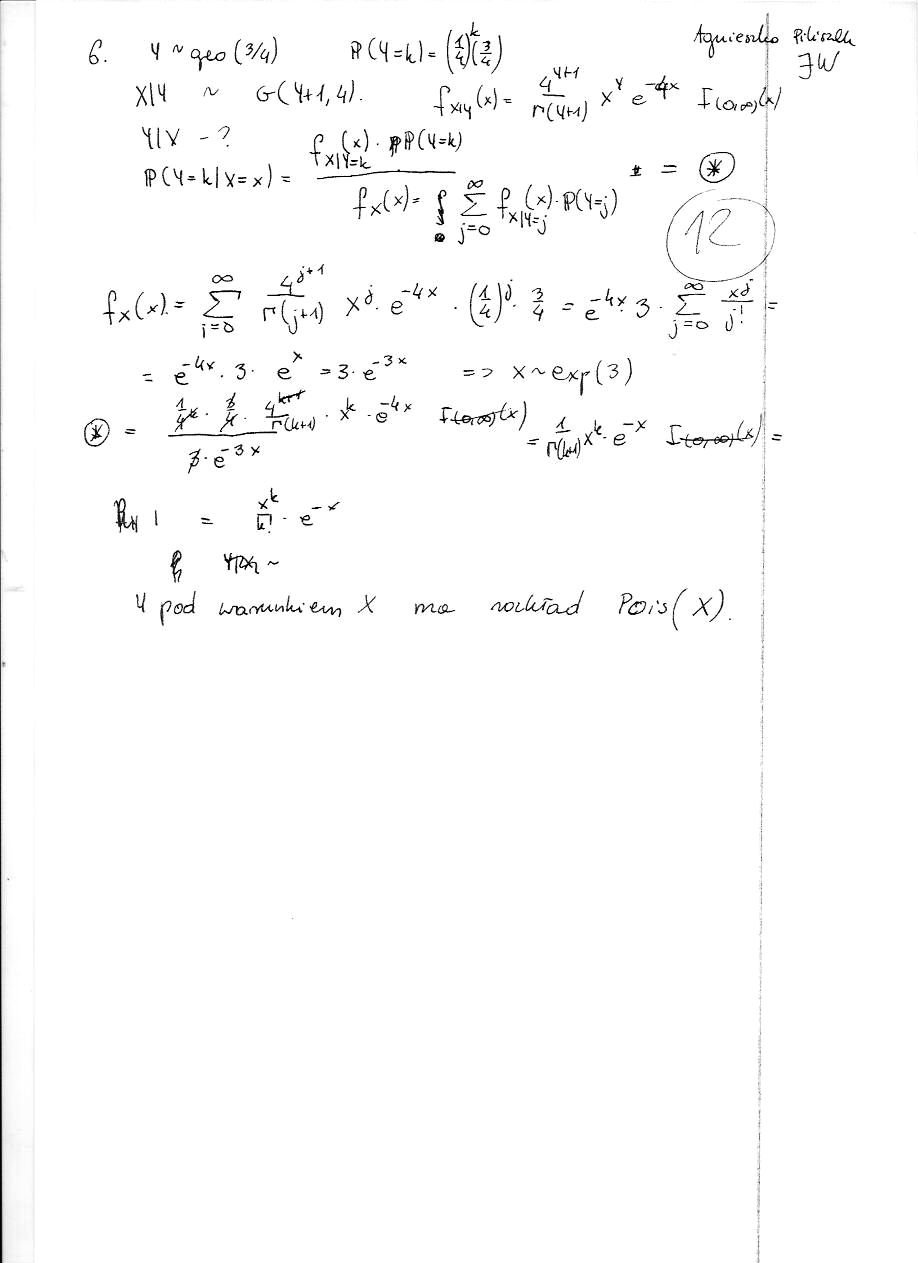 6. Y ~ geo (3/4) P(Y=k) = (1/4)^k (3/4) Agnieszka
JW
X|Y ~ G(Y+1, 4). f_{X|Y}(x) = 4^{Y+1}/Γ(Y+1) x^Y e^{-4x} I_{(0,∞)}(x)
Y|X - ?
P(Y=k|X=x) = f_{X|Y=k}(x) · P(Y=k) / f_X(x) = Σ_{j=0}^{∞} f_{X|Y=j}(x) · P(Y=j) = (*)
12
f_X(x) = Σ_{j=0}^{∞} 4^{j+1}/Γ(j+1) x^j · e^{-4x} · (1/4)^j · 3/4 = e^{-4x} · 3 · Σ_{j=0}^{∞} x^j/j! =
= e^{-4x} · 3 · e^x = 3 · e^{-3x} => X ~ exp(3)
(*) = 1/4^k · 3/4 · 4^{k+1}/Γ(k+1) · x^k · e^{-4x} I_{(0,∞)}(x) / 3 · e^{-3x} = 1/Γ(k+1) x^k · e^{-x} I_{(0,∞)}(x) =
= x^k/k! · e^{-x}
Y pod warunkiem X ma rozkład Pois(X).